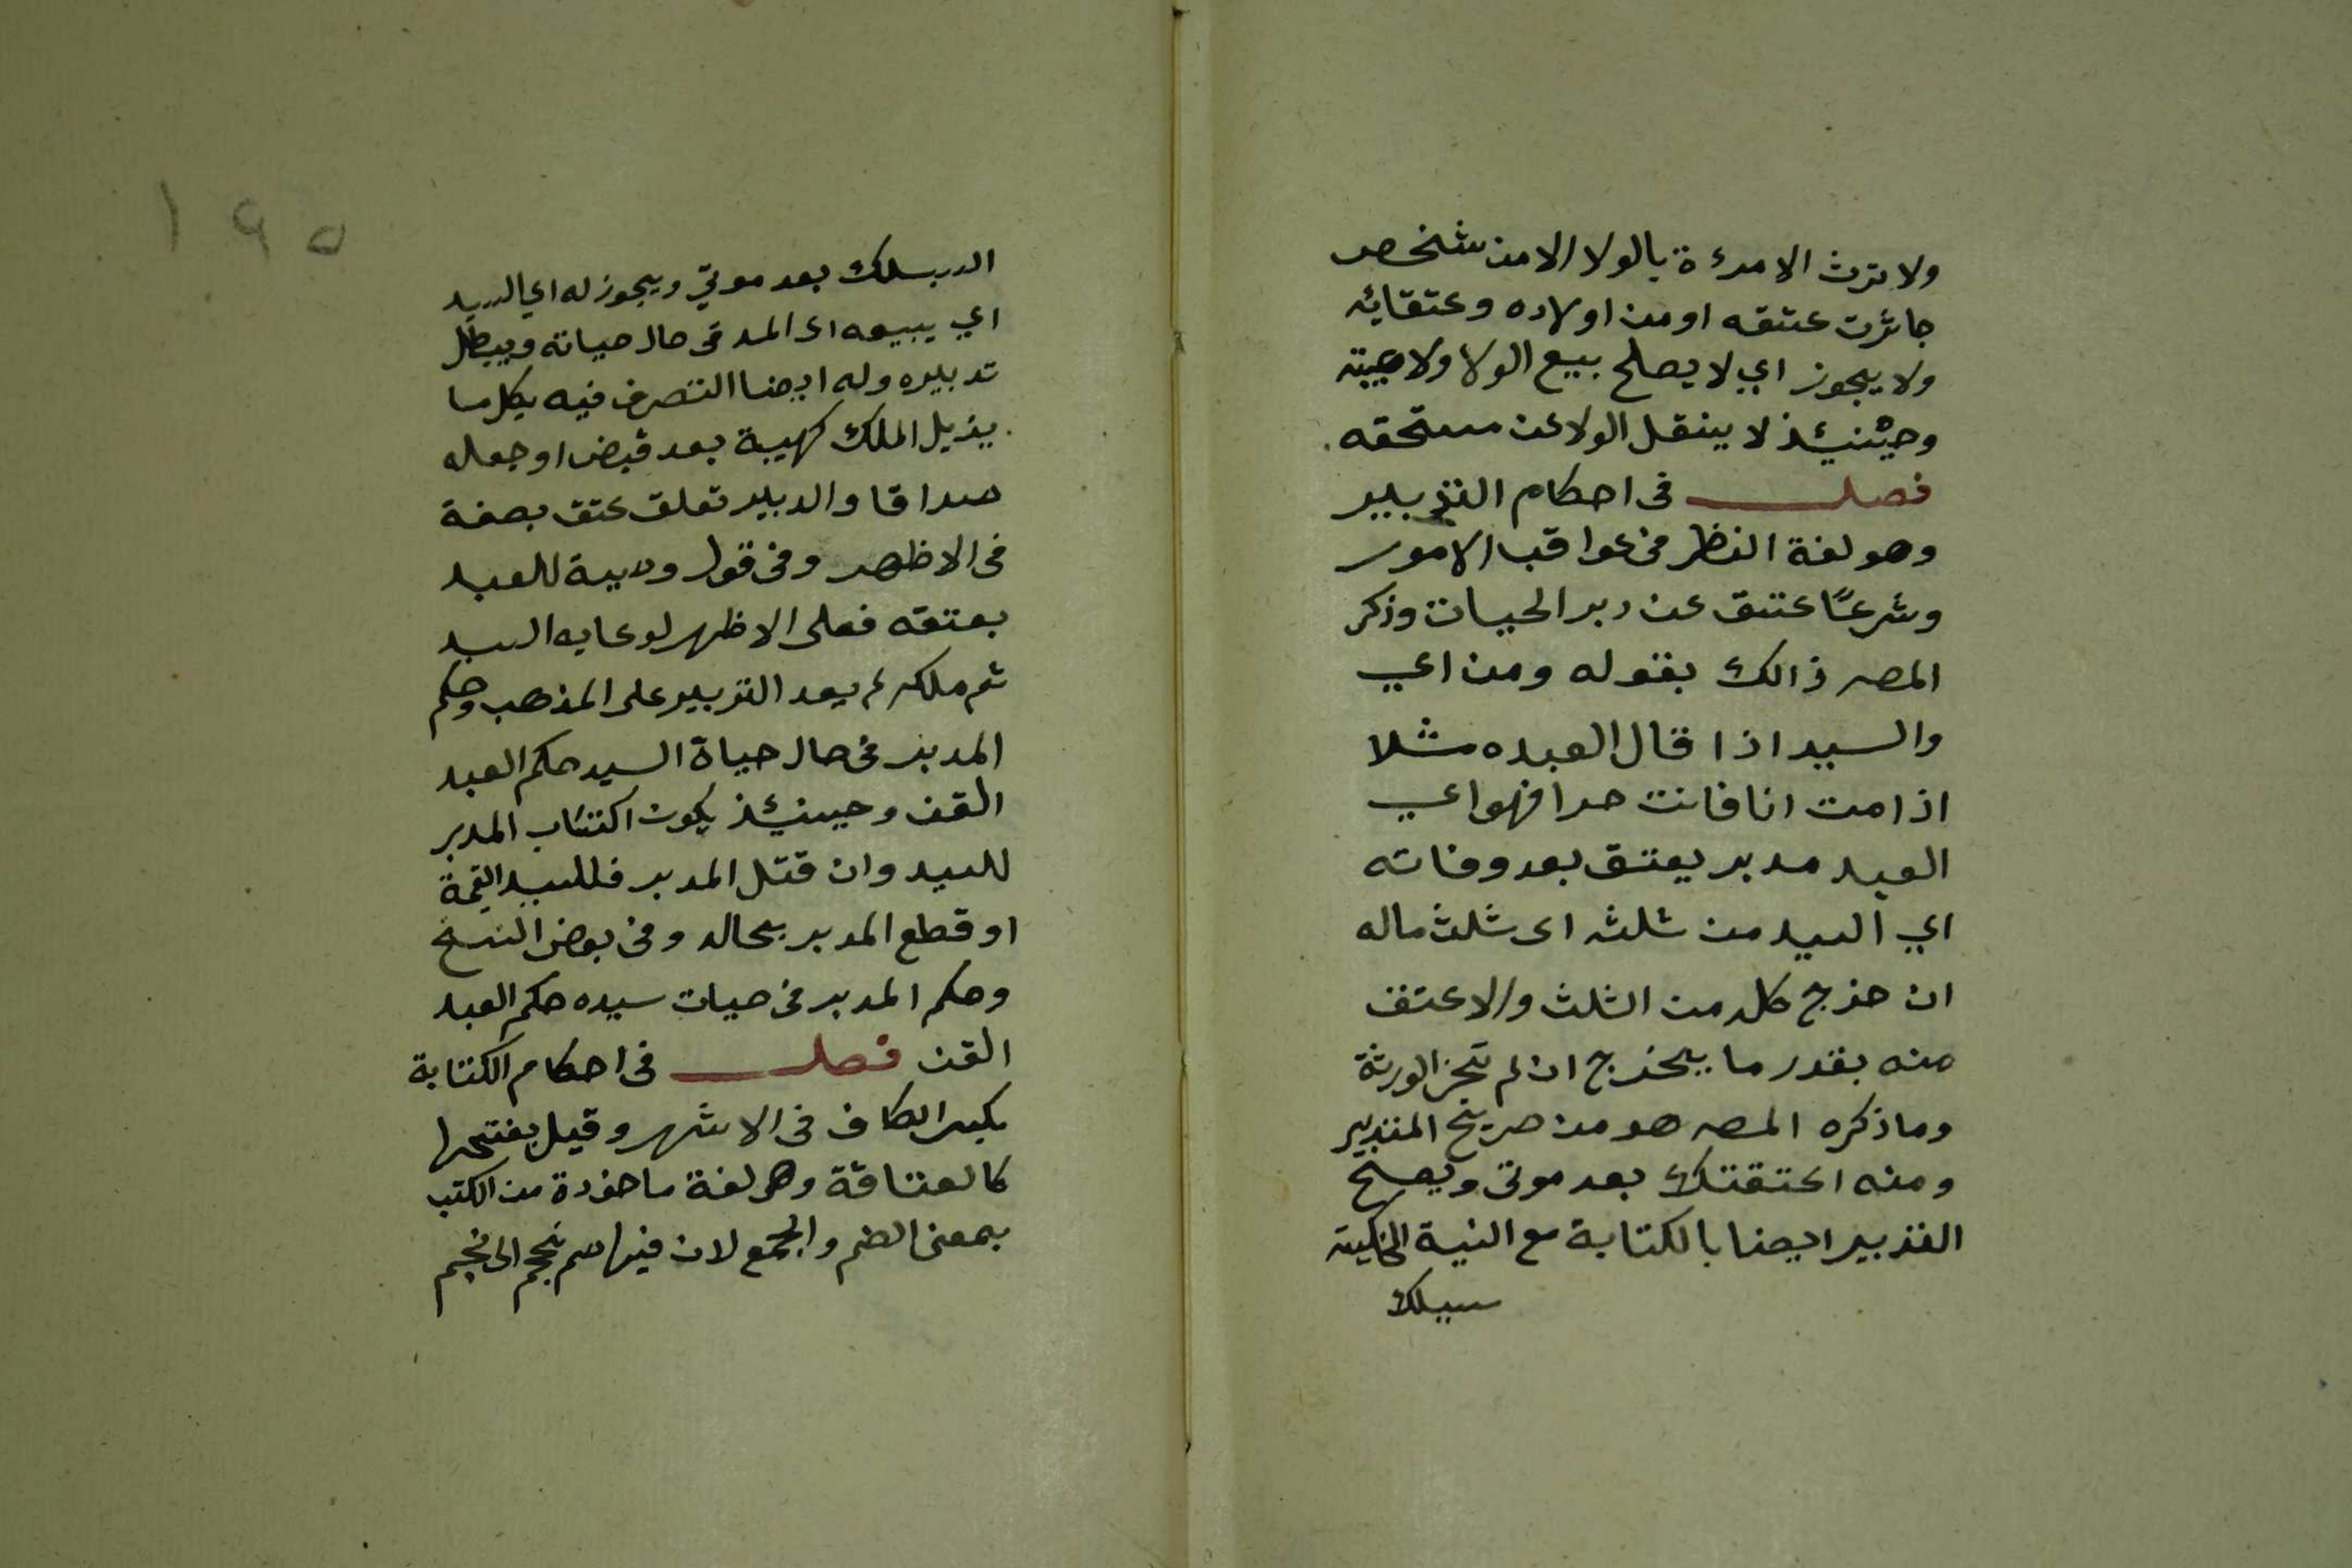 ولا ترث الامرءة بالولا الا من شخص
جائزت عتقه او من اولاده وعتقائه
ولا يجوز اي لا يصلح بيع الولا ولا هبته
وحينئذ لا ينقل الولا عن مستحقه
فصل في احكام التدبير
وهو لغة النظر في عواقب الامور
وشرعًا عتق عن دبر الحيات وذكر
المصـ ذالك بقوله ومن اي
والسيد اذا قال العبده مثلا
اذا مت انا فانت حرا فهو اي
العبد مدبر يعتق بعد وفاته
اي السيد من ثلثه اى ثلث ماله
ان خرج كله من الثلث والا عتق
منه بقدر ما يخرج ان لم تجز الورثة
وما ذكره المصـ هو من صريح التدبير
ومنه اعتقتك بعد موتى ويصح
التدبير ايضا بالكتابة مع النية
سبيلك
١٩٥
بعد موتي ويجوز له اي السيد
اي يبيعه اى المد في حال حياته ويبطل
تدبيره وله ايضا التصرف فيه بكل ما
يزيل الملك كهيبة بعد قبض او جعله
صداقا والدبير تعلق عتق بصفة
في الاظهر وفي قول وصية للعبد
بعتقه فعلى الاظهر لو عايه السيد
ثم ملكه لم يعد التدبير على المذهب وحكم
المدبر في حال حياة السيد حكم العبد
القن وحينئذ يكون اكتساب المدبر
للسيد وان قتل المدبر فللسيد القيمة
او قطع المدبر بحاله وفي بعض النسخ
وحكم المدبر في حيات سيده حكم العبد
القن فصل في احكام الكتابة
بكسر الكاف في الاشهر وقيل بفتحها
كالعتاقة وهى لغة ماخوذة من الكتب
بمعنى الضم والجمع لان فيها ضم نجم الى نجم